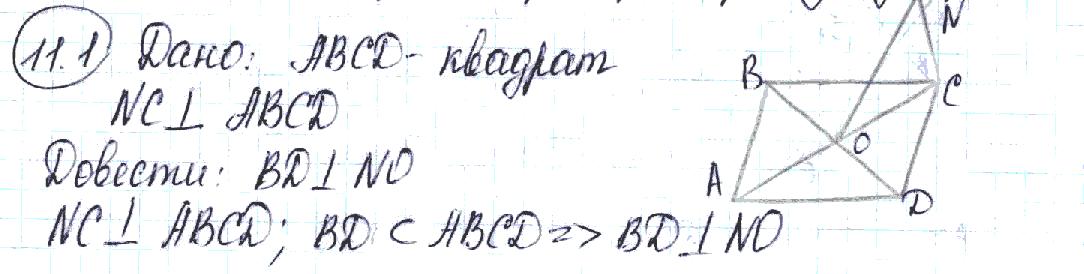 11.1 Дано: ABCD - квадрат
NC ⊥ ABCD
Довести: BD ⊥ NO
NC ⊥ ABCD; BD ⊂ ABCD => BD ⊥ NO
N
B
C
O
A
D